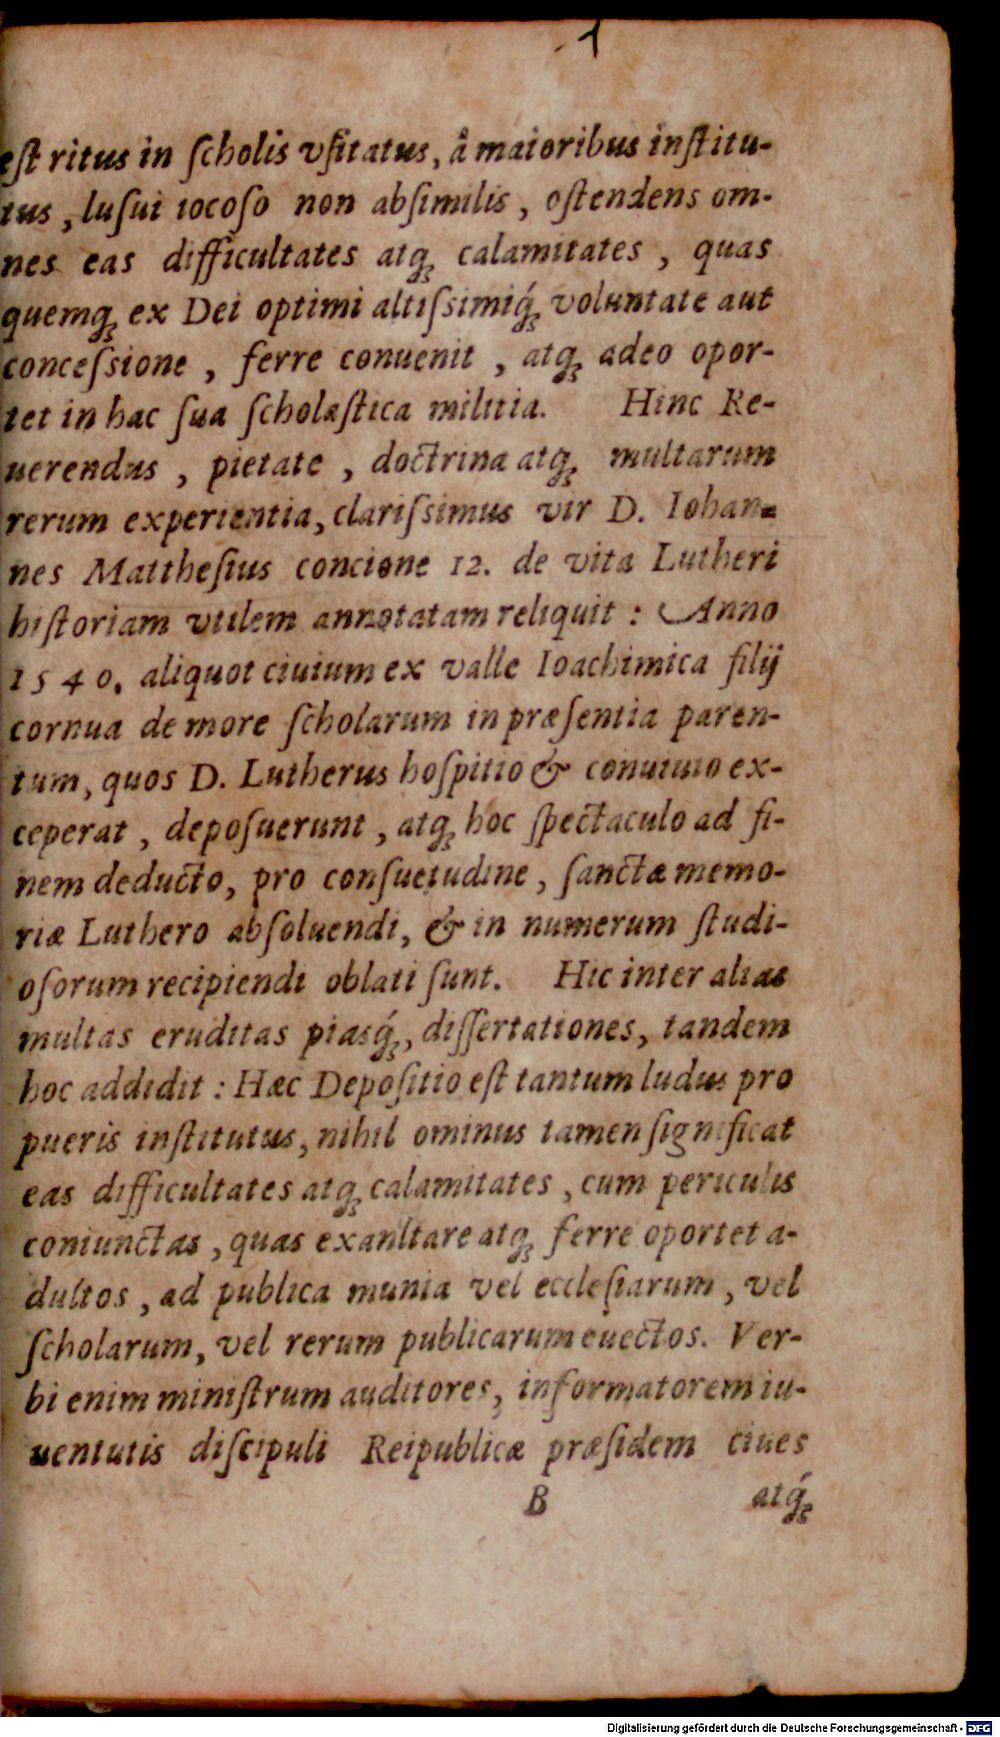 1
eſt ritus in ſcholis vſitatus, â maioribus inſtitu-
tus, luſui iocoſo non abſimilis, oſtendens om-
nes eas difficultates atq; calamitates, quas
quemq; ex Dei optimi altiſsimiq́; voluntate aut
conceſsione, ferre conuenit, atq; adeo opor-
tet in hac ſua ſcholaſtica militia. Hinc Re-
uerendus, pietate, doctrina atq; multarum
rerum experientia, clariſsimus vir D. Iohan-
nes Mattheſius concione 12. de vita Lutheri
hiſtoriam vtilem annotatam reliquit: Anno
1540. aliquot ciuium ex valle Ioachimica filij
cornua de more ſcholarum in præſentia paren-
tum, quos D. Lutherus hoſpitio & conuiuio ex-
ceperat, depoſuerunt, atq; hoc ſpectaculo ad fi-
nem deducto, pro conſuetudine, ſanctæ memo-
riæ Luthero abſoluendi, & in numerum ſtudi-
oſorum recipiendi oblati ſunt. Hic inter alias
multas eruditas piasq́;, diſſertationes, tandem
hoc addidit: Hæc Depoſitio eſt tantum ludus pro
pueris inſtitutus, nihil ominus tamen ſignificat
eas difficultates atq; calamitates, cum periculis
coniunctas, quas exanltare atq; ferre oportet a-
dultos, ad publica munia vel eccleſiarum, vel
ſcholarum, vel rerum publicarum euectos. Ver-
bi enim miniſtrum auditores, informatorem iu-
uentutis diſcipuli Reipublicæ præſidem ciues
B atq́;
Digitalisierung gefördert durch die Deutsche Forschungsgemeinschaft - DFG